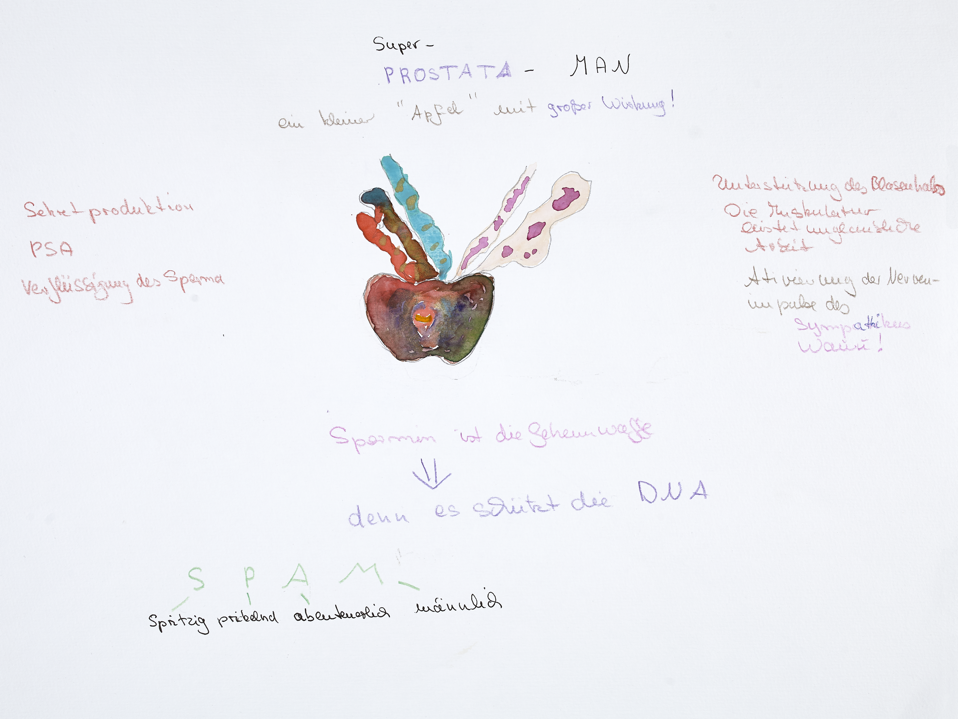 Super-
PROSTATA - MAN
ein kleiner "Apfel" mit großer Wirkung!
Sekretproduktion
PSA
Verflüssigung des Sperma
Unterstützung des Blasenhals
Die Muskulatur
leistet unglaubliche
Arbeit
Ativierung der Nerven-
impulse des
Sympathikus
Spermin ist die Geheimwaffe
denn es schützt die DNA
S P A M
Spritzig prikelnd abenteuerlich männlich